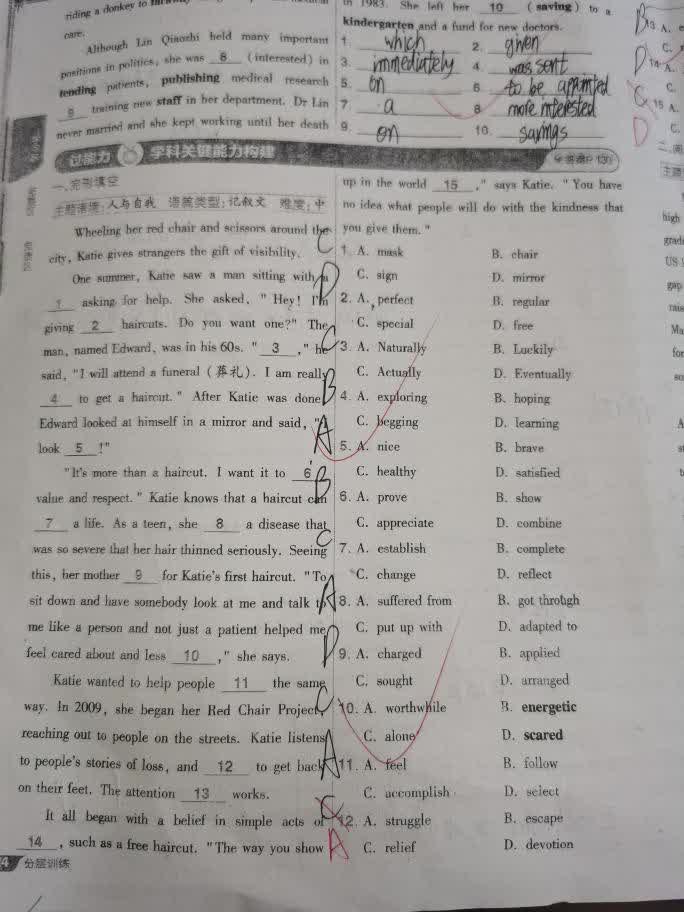 riding a donkey to
care.
Although Lin Qiaozhi held many important
positions in politics, she was 8 (interested) in
tending patients, publishing medical research
9 training new staff in her department. Dr Lin
never married and she kept working until her death
in 1983. She left her 10 (saving) to a
kindergarten and a fund for new doctors.
1. which 2. given
3. immediately 4. was sent
5. on 6. to be appointed
7. a 8. more interested
9. on 10. savings
过能力 学科关键能力构建
一、完形填空
主题语境:人与自我 语篇类型:记叙文 难度:中
Wheeling her red chair and scissors around the
city, Katie gives strangers the gift of visibility.
One summer, Katie saw a man sitting with a
1 asking for help. She asked, "Hey! I'm
giving 2 haircuts. Do you want one?" The
man, named Edward, was in his 60s. "3," he
said, "I will attend a funeral (葬礼). I am really
4 to get a haircut." After Katie was done,
Edward looked at himself in a mirror and said, "I
look 5!"
"It's more than a haircut. I want it to 6
value and respect." Katie knows that a haircut can
7 a life. As a teen, she 8 a disease that
was so severe that her hair thinned seriously. Seeing
this, her mother 9 for Katie's first haircut. "To
sit down and have somebody look at me and talk to
me like a person and not just a patient helped me
feel cared about and less 10," she says.
Katie wanted to help people 11 the same
way. In 2009, she began her Red Chair Project,
reaching out to people on the streets. Katie listens
to people's stories of loss, and 12 to get back
on their feet. The attention 13 works.
It all began with a belief in simple acts of
14, such as a free haircut. "The way you show
4 分层训练
up in the world 15," says Katie. "You have
no idea what people will do with the kindness that
you give them."
C 1. A. mask B. chair
C. sign D. mirror
D 2. A. perfect B. regular
C. special D. free
C 3. A. Naturally B. Luckily
C. Actually D. Eventually
B 4. A. exploring B. hoping
C. begging D. learning
A 5. A. nice B. brave
C. healthy D. satisfied
B 6. A. prove B. show
C. appreciate D. combine
C 7. A. establish B. complete
C. change D. reflect
A 8. A. suffered from B. got through
C. put up with D. adapted to
D 9. A. charged B. applied
C. sought D. arranged
C 10. A. worthwhile B. energetic
C. alone D. scared
A 11. A. feel B. follow
C. accomplish D. select
C 12. A. struggle B. escape
A C. relief D. devotion
13 A.
C.
D 14 A.
C.
C 15 A.
D C.
主题
high
grad
US
gap
rais
Ma
for